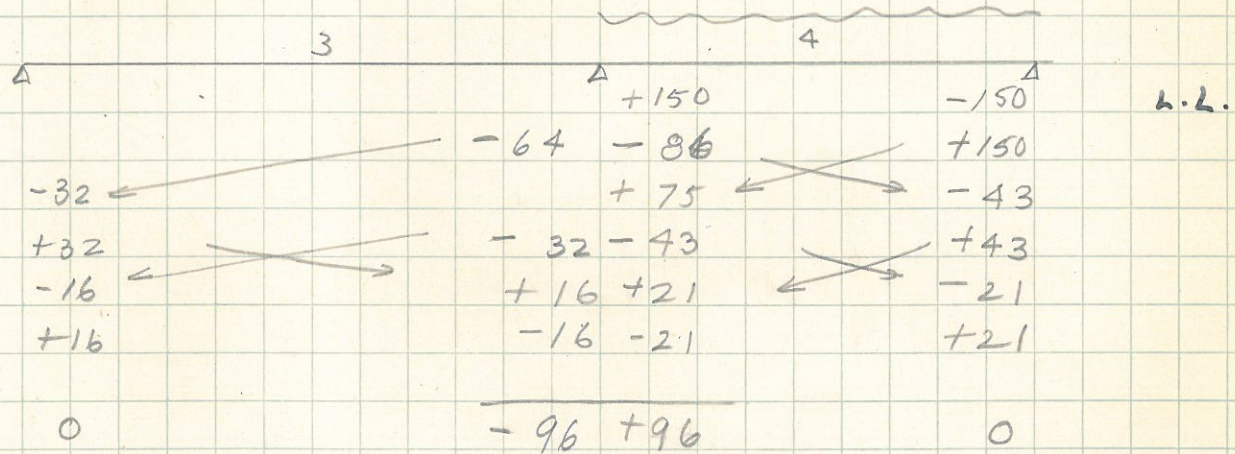 3 4
+150 -150 L.L.
-64 -86 +150
-32 +75 -43
+32 -32 -43 +43
-16 +16 +21 -21
+16 -16 -21 +21
0 -96 +96 0